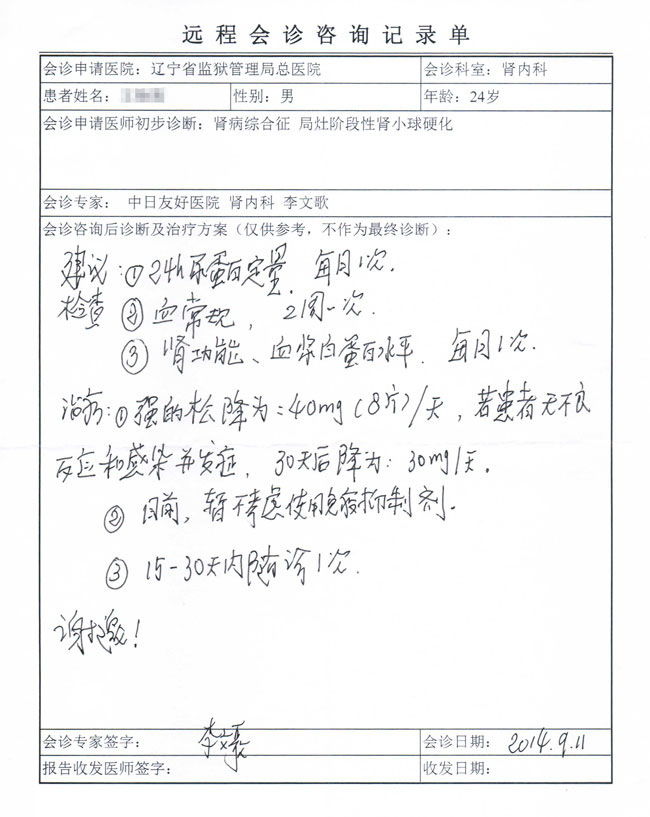 远程会诊咨询记录单
会诊申请医院：辽宁省监狱管理局总医院 会诊科室：肾内科
患者姓名： 性别：男 年龄：24岁
会诊申请医师初步诊断：肾病综合征 局灶阶段性肾小球硬化
会诊专家： 中日友好医院 肾内科 李文歌
会诊咨询后诊断及治疗方案（仅供参考，不作为最终诊断）：
建议：①24h尿蛋白定量，每月1次.
检查 ②血常规，2周一次.
③肾功能、血浆白蛋白水平，每月1次.
治疗：①强的松降为：40mg（8片）/天，若患者无不良
反应和感染并发症，30天后降为：30mg/天。
②目前，暂不考虑使用免疫抑制剂.
③15-30天内随诊1次.
谢邀！
会诊专家签字： 李文歌 会诊日期： 2014.9.11
报告收发医师签字： 收发日期：